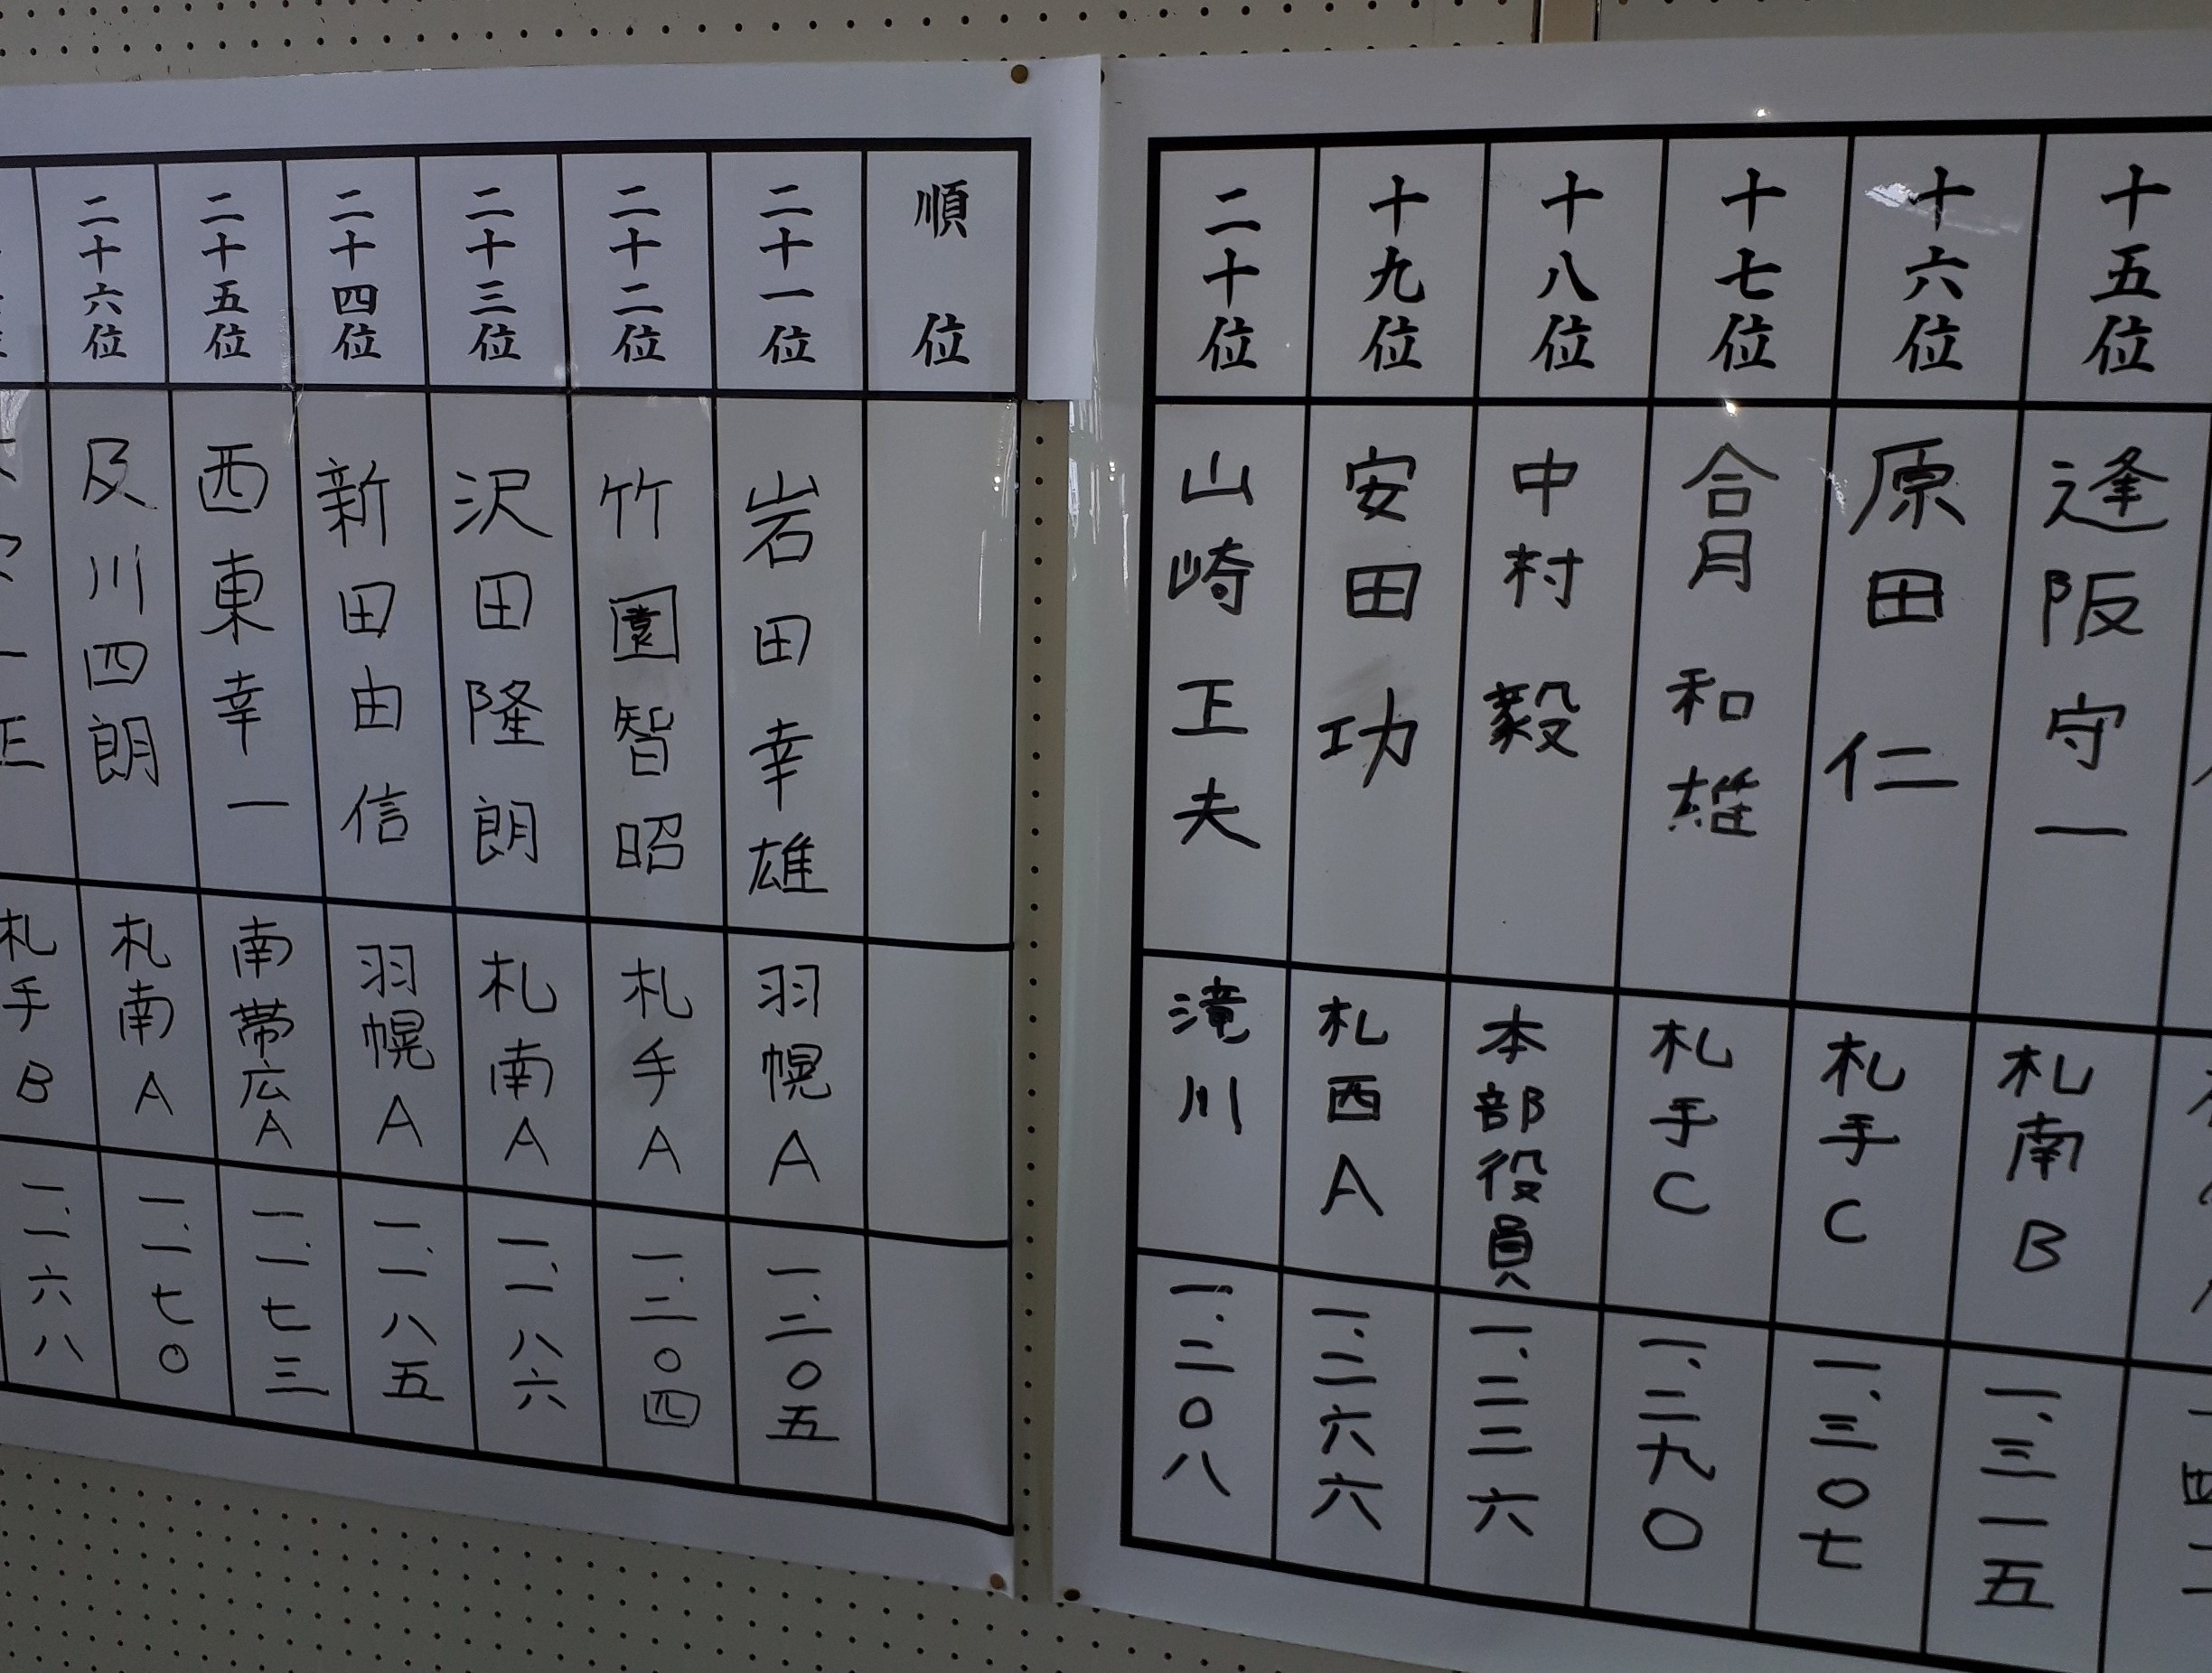 十五位
逢阪守一
札南B
一、三一五
十六位
原田 仁
札手C
一、三〇七
十七位
合月 和雄
札手C
一、二九〇
十八位
中村 毅
本部役員
一、二三六
十九位
安田 功
札西A
一、二六六
二十位
山崎正夫
滝川
一、二〇八
順位
二十一位
岩田幸雄
羽幌A
一、二〇五
二十二位
竹園智昭
札手A
一、二〇四
二十三位
沢田隆朗
札南A
一、一八六
二十四位
新田由信
羽幌A
一、一八五
二十五位
西東幸一
南帯広A
一、一七三
二十六位
及川四朗
札南A
一、一七〇
札手B
一、一六八